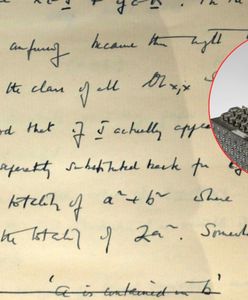 confusing because this might
the class of all
that if I actually appe
separately substituted back for
totality of a² + b² where
the totality of 2a². Some
'a is contained in b'